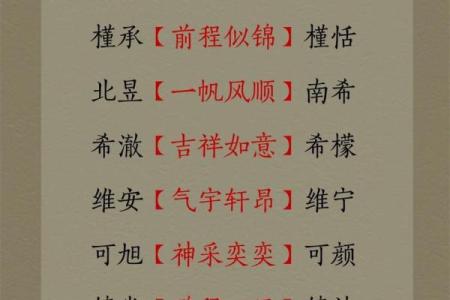 槿承【前程似锦】槿恬
北昱【一帆风顺】南希
希澈【吉祥如意】希檬
维安【气宇轩昂】维宁
可旭【神采奕奕】可颜